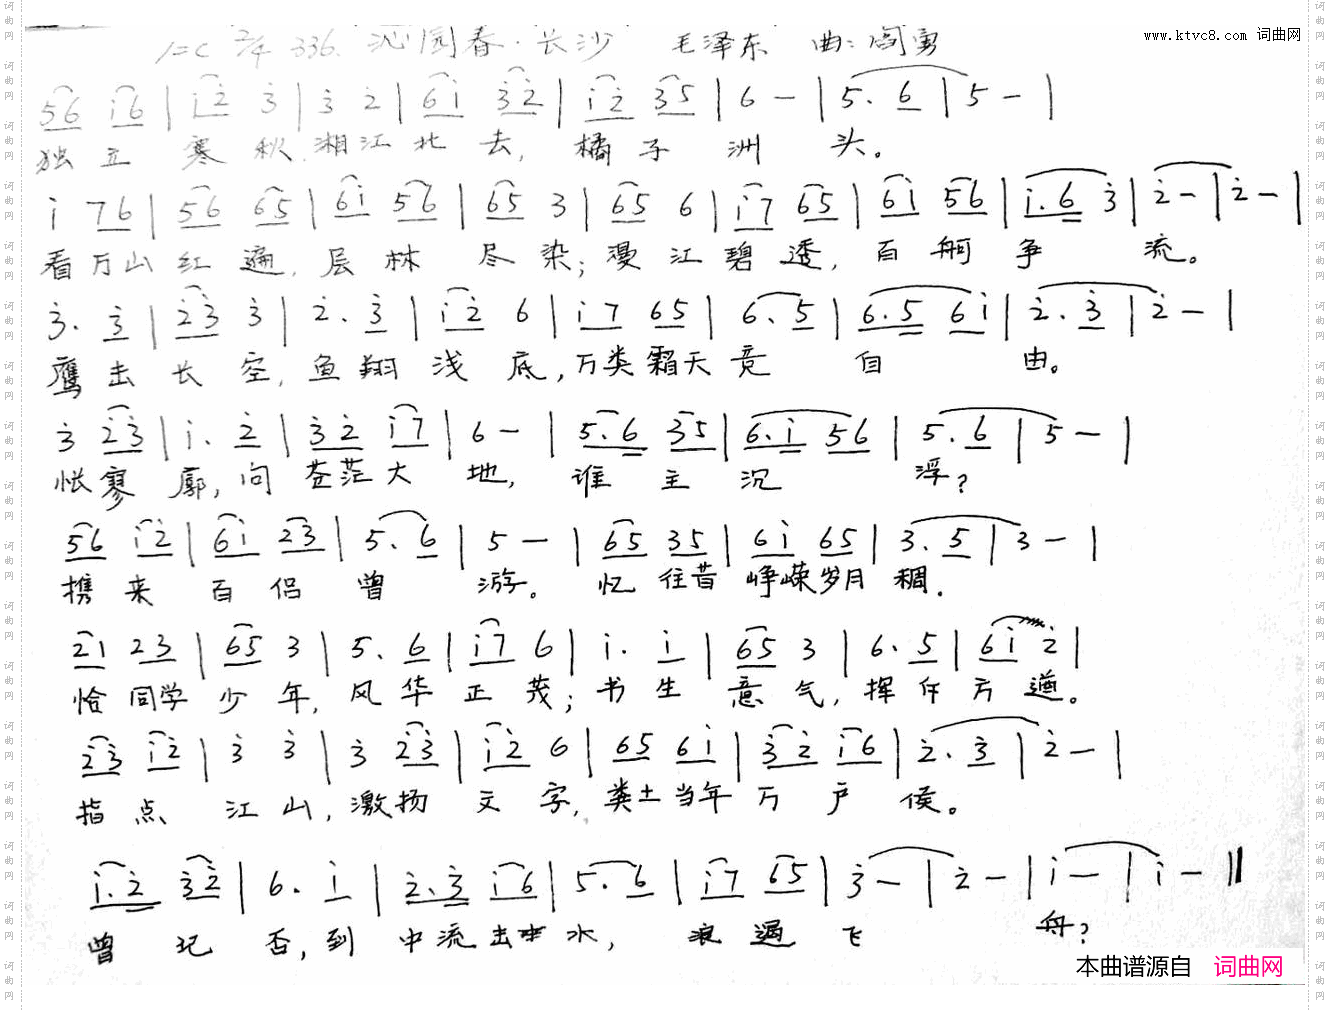 www.ktvc8.com 词曲网
1=C 2/4 336. 沁园春·长沙 毛泽东 曲:阎勇
56 i6 | i2 3 | 3 2 | 6i 32 | i2 35 | 6 - | 5. 6 | 5 - |
独立 寒秋,湘江北去,橘子洲头。
i 76 | 56 65 | 6i 56 | 65 3 | 65 6 | i7 65 | 6i 56 | i.6 3 | 2 - | 2 - |
看万山红遍,层林尽染;漫江碧透,百舸争流。
3. 3 | 23 3 | 2. 3 | i2 6 | i7 65 | 6. 5 | 6.5 6i | 2. 3 | 2 - |
鹰击长空,鱼翔浅底,万类霜天竞自由。
3 23 | i. 2 | 32 i7 | 6 - | 5.6 35 | 6.i 56 | 5. 6 | 5 - |
怅寥廓,问苍茫大地,谁主沉浮?
56 i2 | 6i 23 | 5. 6 | 5 - | 65 35 | 6i 65 | 3. 5 | 3 - |
携来百侣曾游。忆往昔峥嵘岁月稠.
21 23 | 65 3 | 5. 6 | i7 6 | i. i | 65 3 | 6. 5 | 6i 2 |
恰同学少年,风华正茂;书生意气,挥斥方遒。
23 i2 | 3 3 | 3 23 | i2 6 | 65 6i | 32 i6 | 2. 3 | 2 - |
指点江山,激扬文字,粪土当年万户侯。
i.2 32 | 6. i | 2.3 i6 | 5. 6 | i7 65 | 3 - | 2 - | i - | i - ‖
曾记否,到中流击水,浪遏飞舟?
本曲谱源自 词曲网